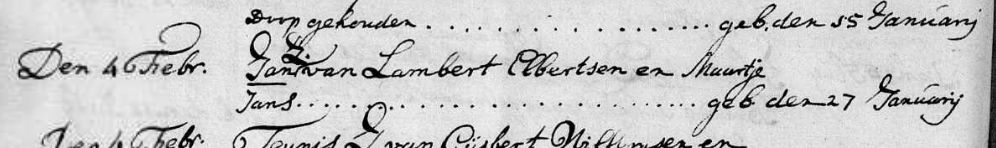 Doop gehouden . . . . . . . . . . . . . . . . . . . . geb. den 15 Januarij
Den 4 Febr. Jans Z. van Lambert Elbertsen en Maartje
Jans . . . . . . . . . . . . . . . . . . . . . . . . . . geb den 27 Januarij
Den 4 Febr. Teunis Z van Gijsbert Willemsen en